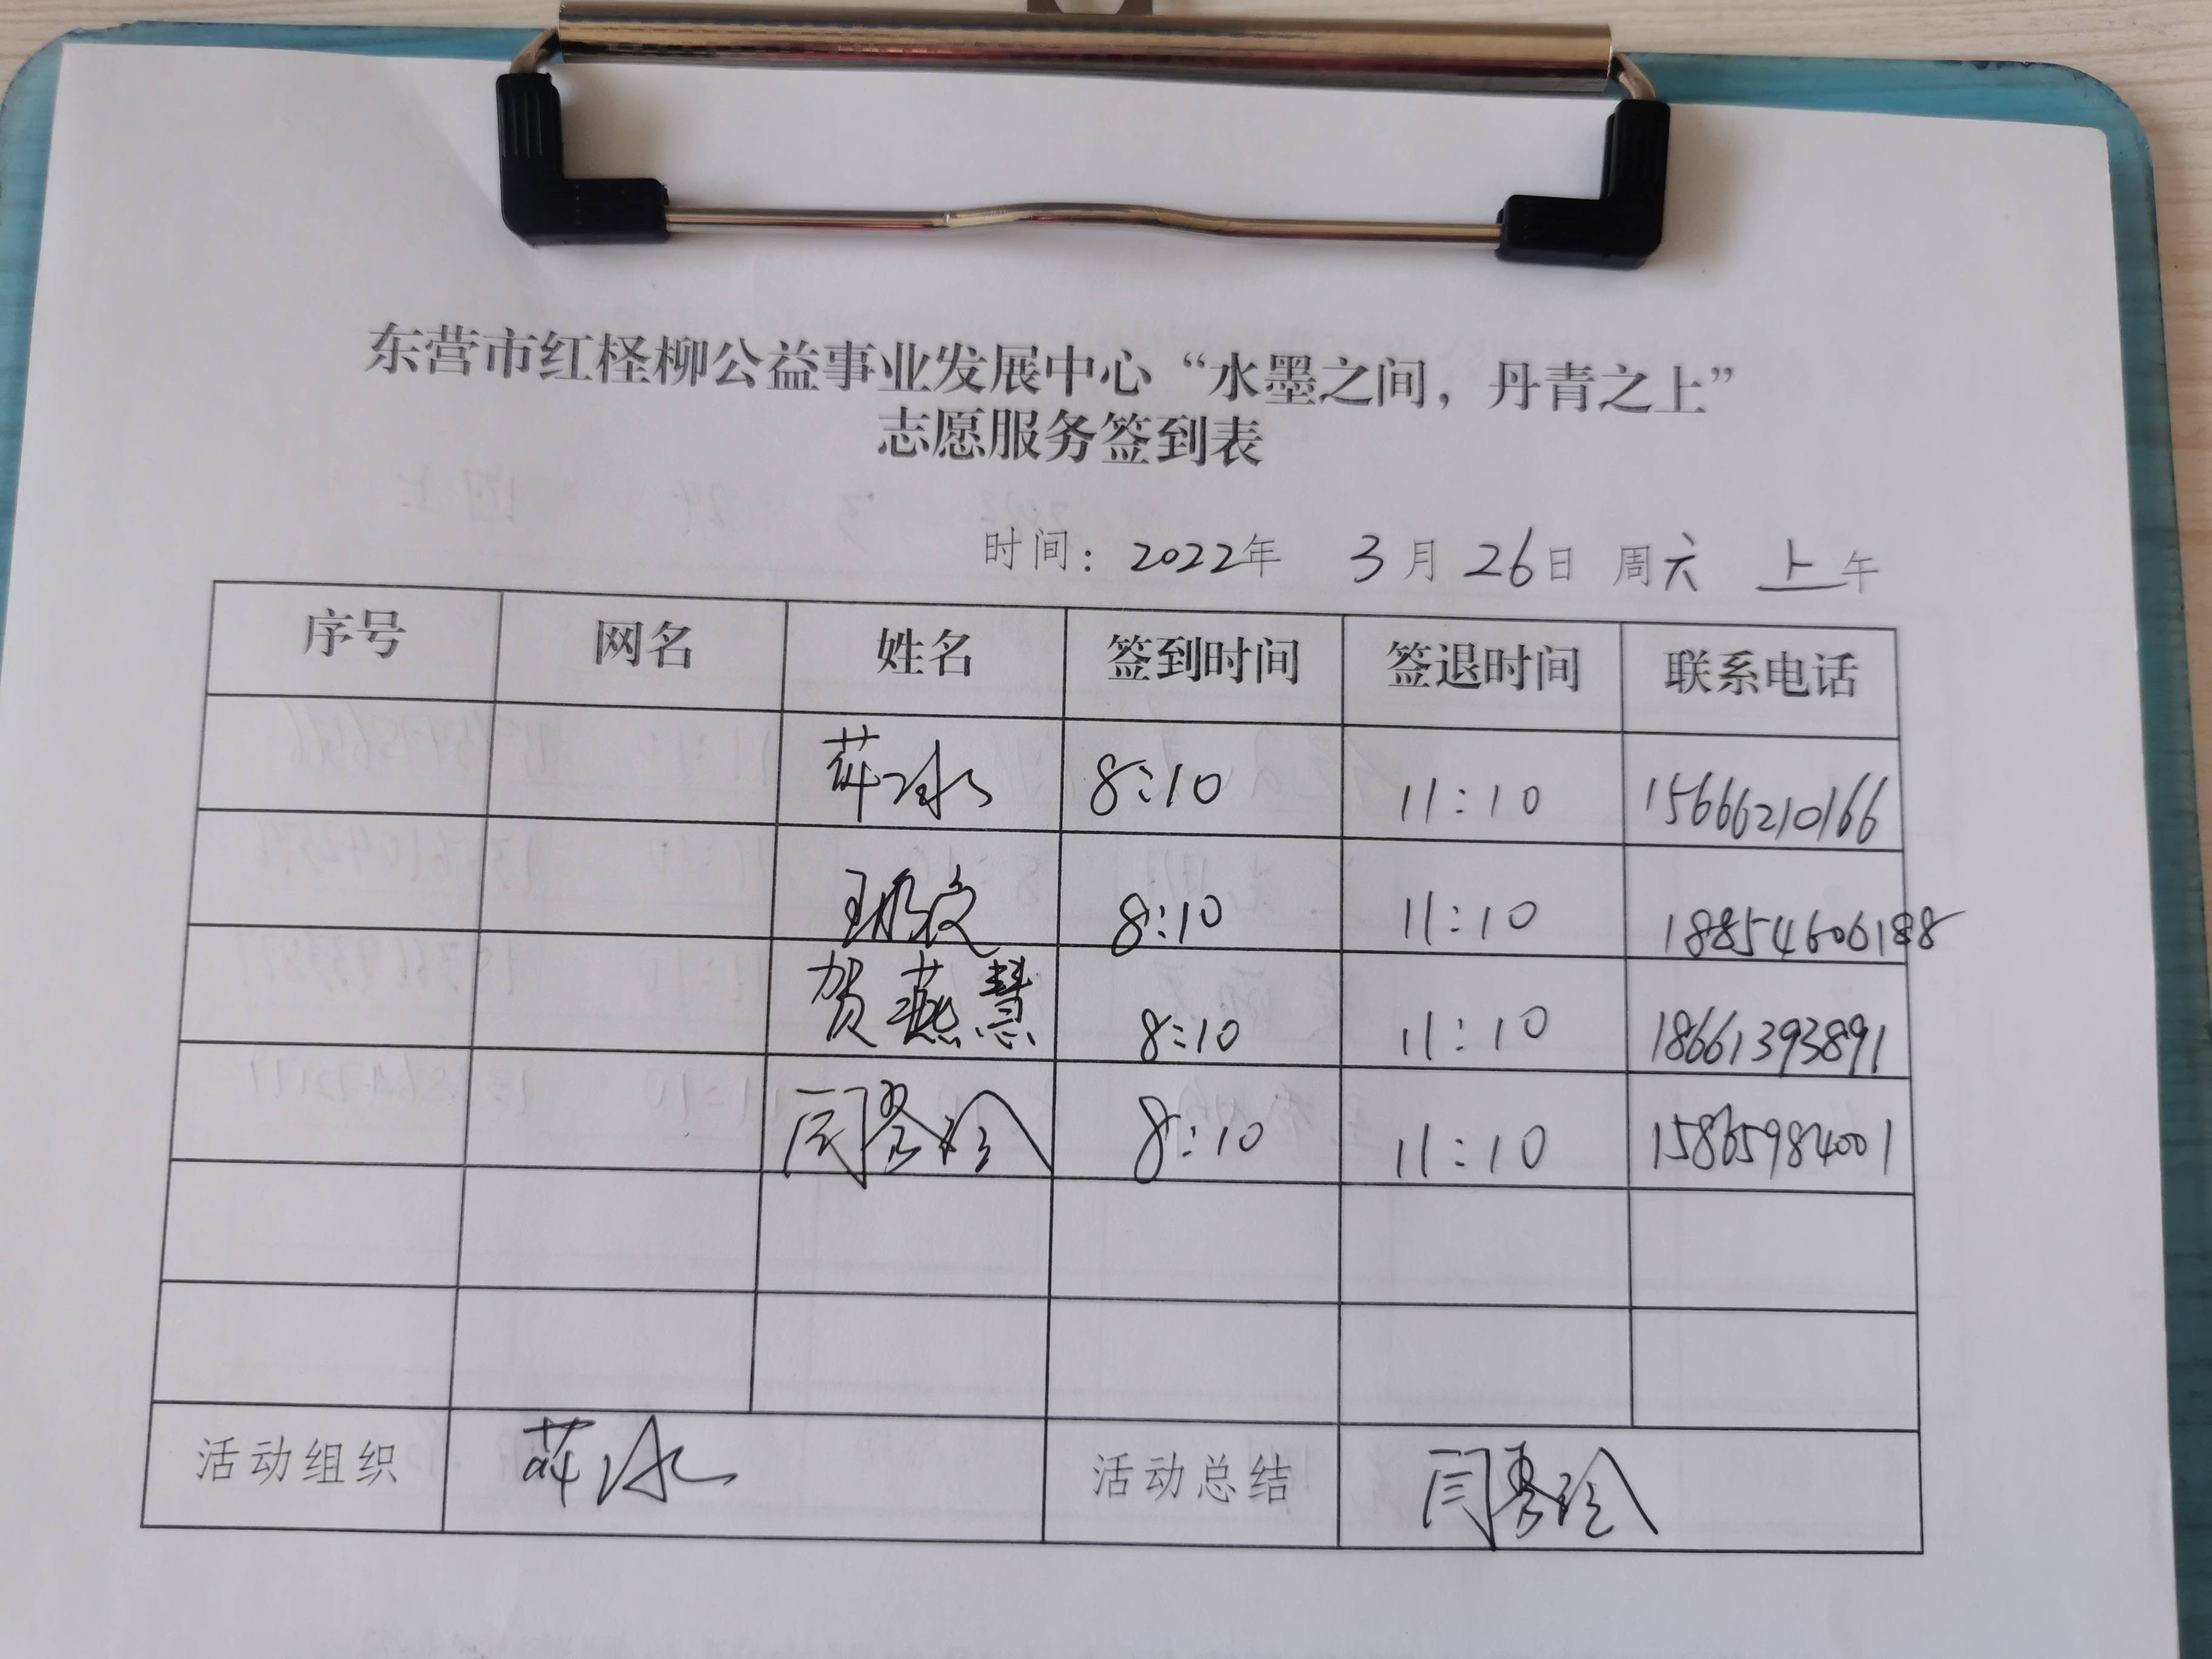 东营市红柽柳公益事业发展中心“水墨之间，丹青之上”
志愿服务签到表
时间：2022年 3月26日 周六 上午
序号 网名 姓名 签到时间 签退时间 联系电话
8:10 11:10 15666210166
8:10 11:10 18854606188
贺燕慧 8:10 11:10 18661393891
闫秀玲 8:10 11:10 15865984001
活动组织 活动总结 闫秀玲